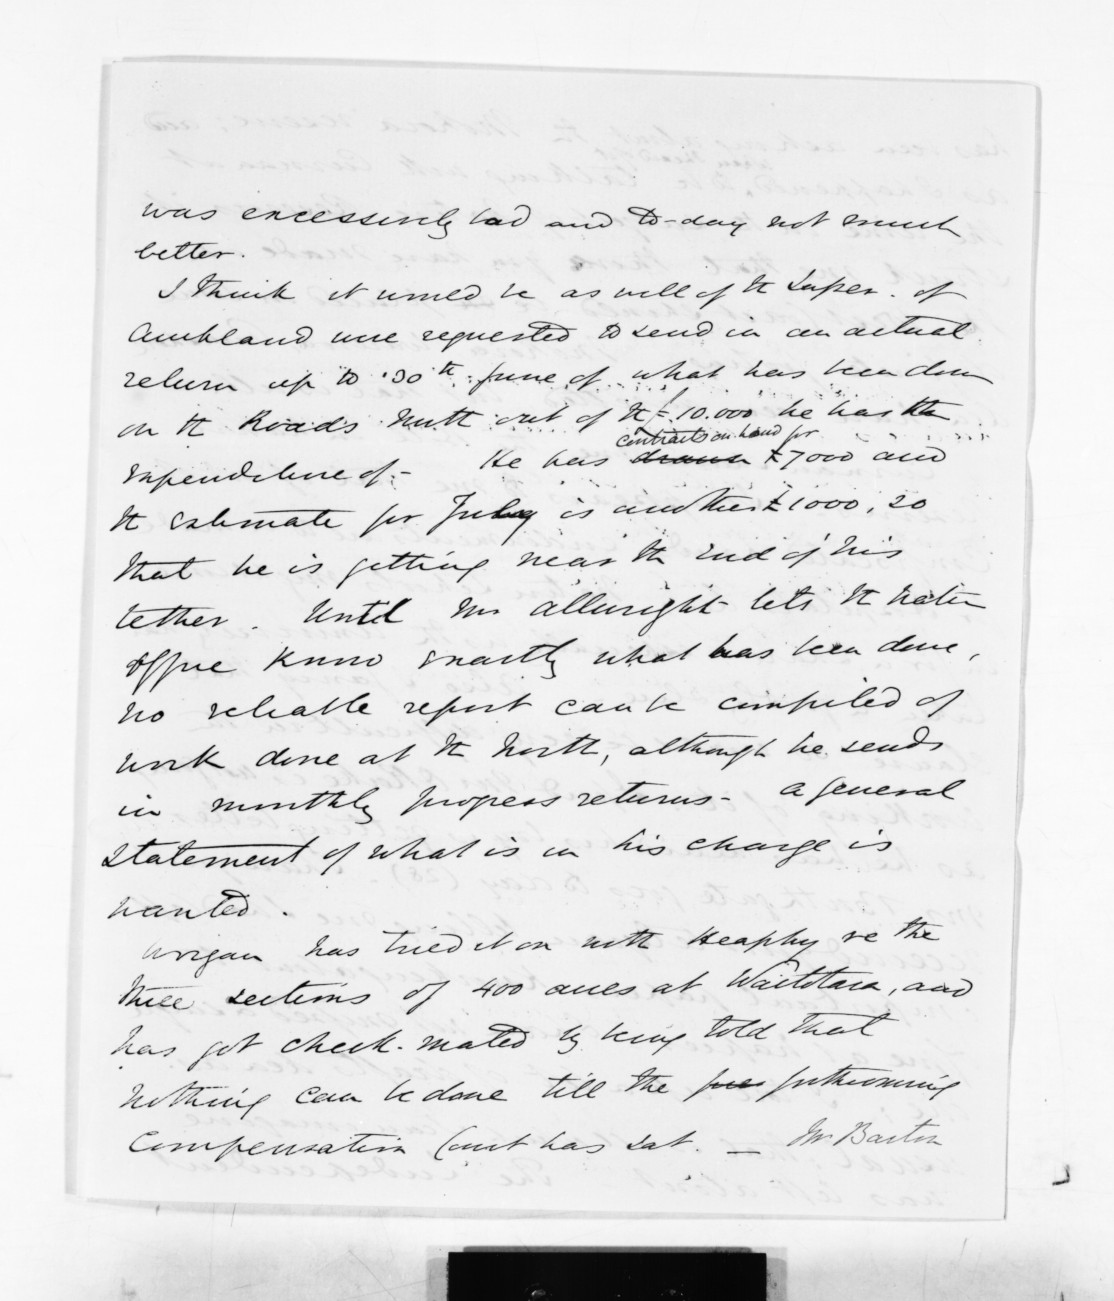 was excessively bad and to-day not much
better.
I think it would be as well if the Super. of
Auckland were requested to send in an actual
return up to 30th June of what has been done
on the Roads North out of the £10.000 he has the
expenditure of - He has drawn contracts on hand for £7000 and
the estimate for July is another £1000, so
that he is getting near the end of his
tether. Until Mr Allwright lets the Native
Office know exactly what has been done,
no reliable report can be compiled of
work done at the North, although he sends
in monthly progress returns - a general
statement of what is in his charge is
wanted.
Wrigan has tried it on with Heaphy re the
three sections of 400 acres at Waitotara, and
has got check-mated by being told that
nothing can be done till the forthcoming
Compensation Court has sat. — Mr Barton